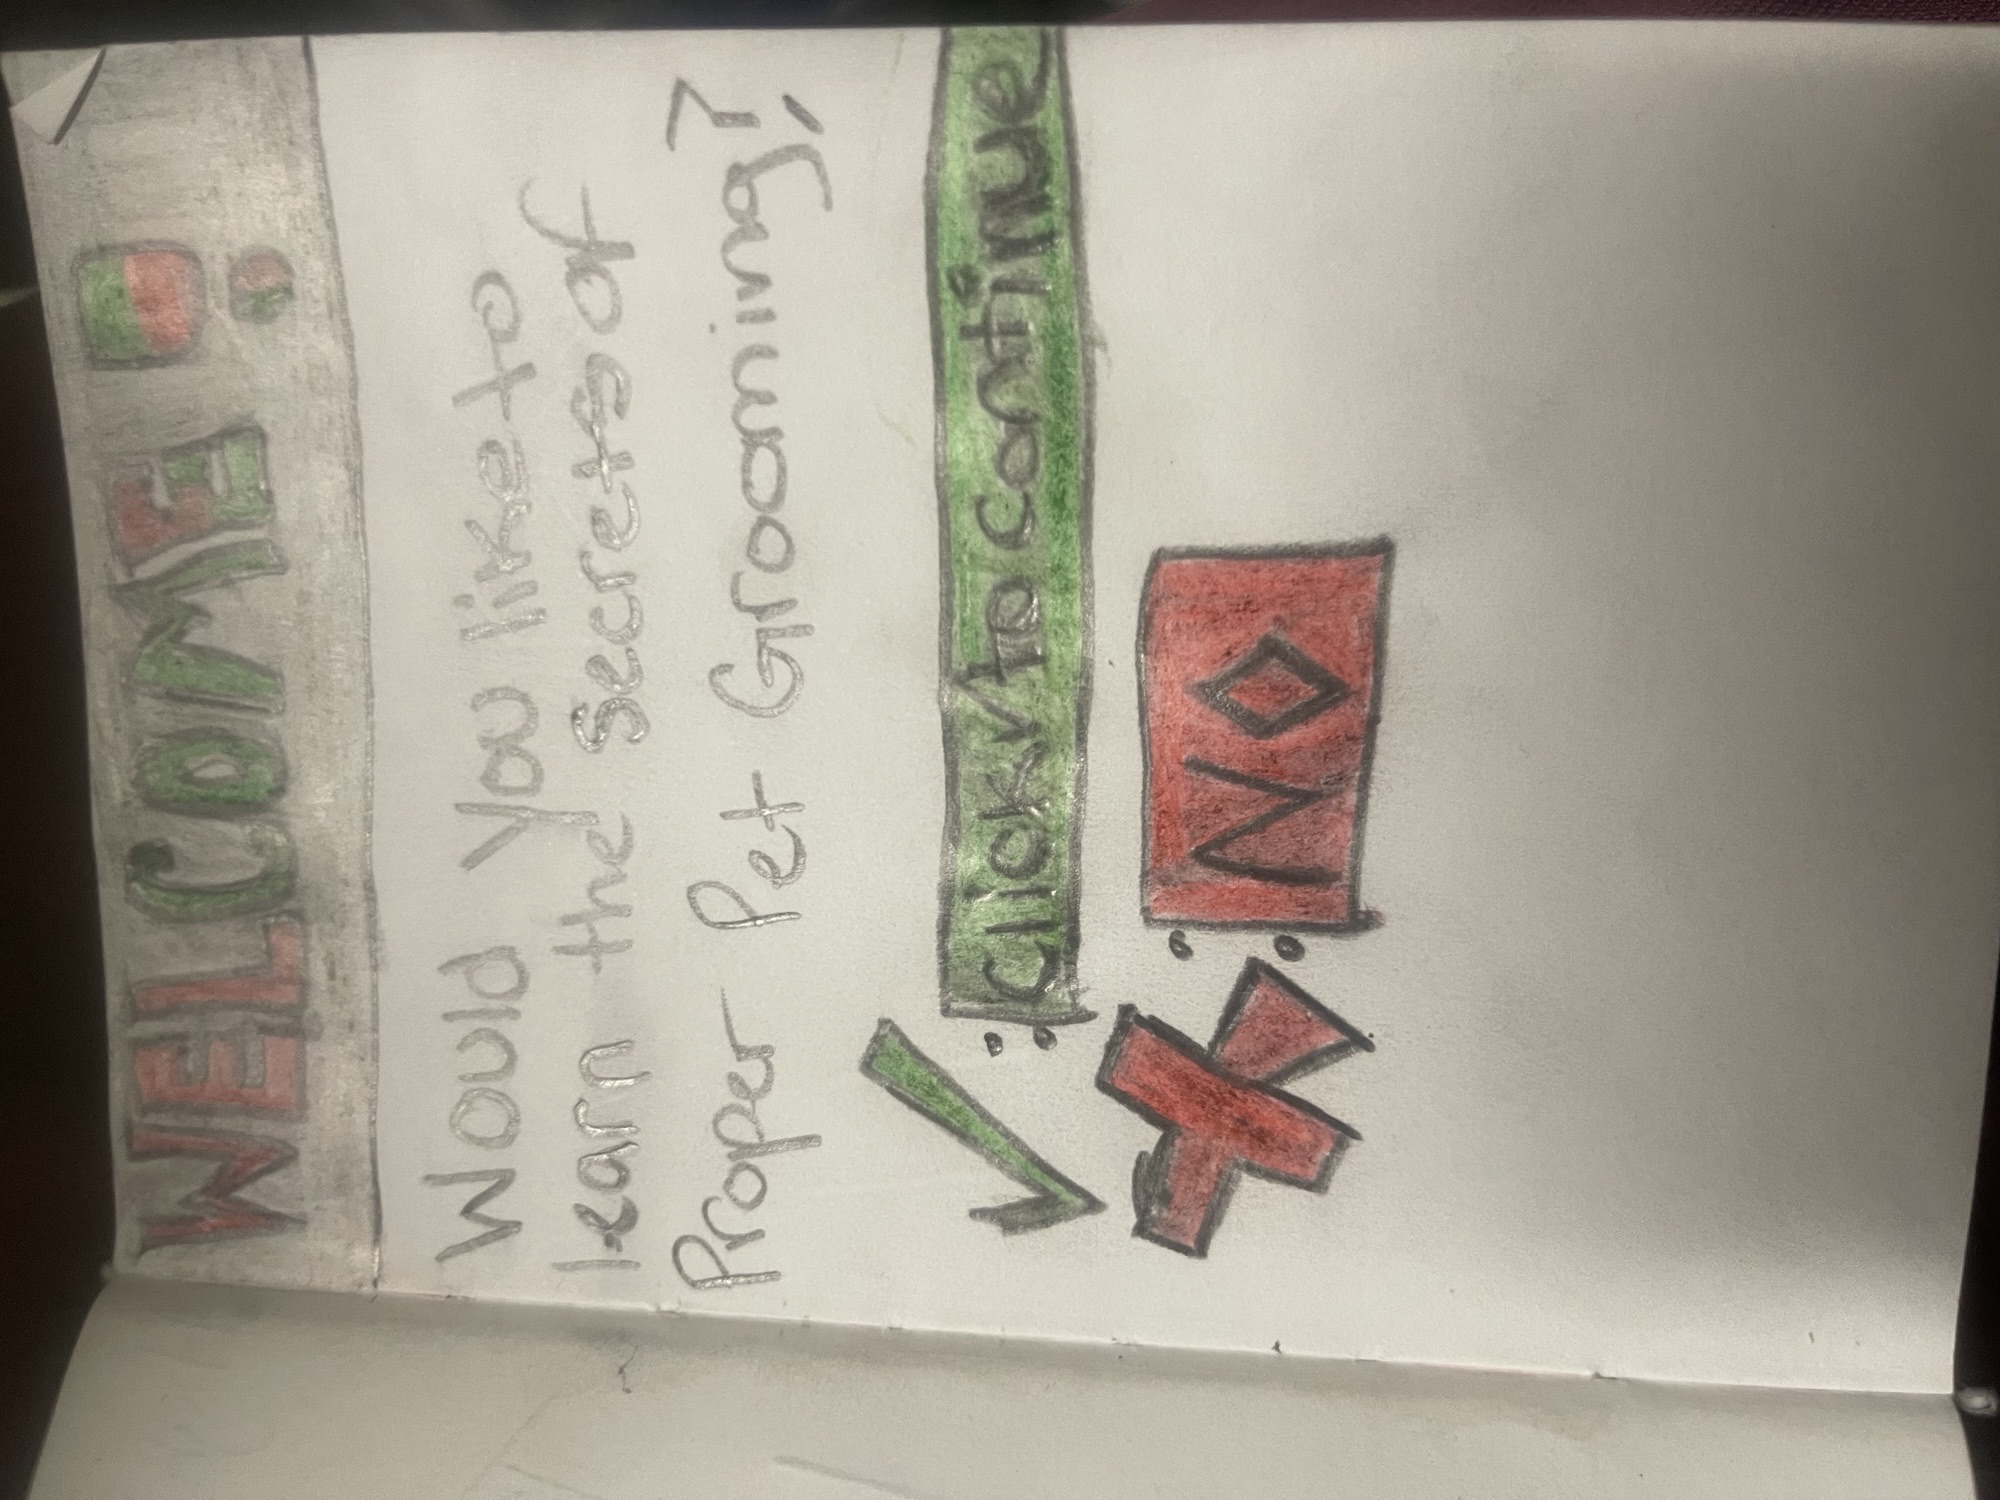 WELCOME!
Would you like to
learn the secrets of
Proper Pet Grooming?
✓: Click ✓ to continue
X: NO